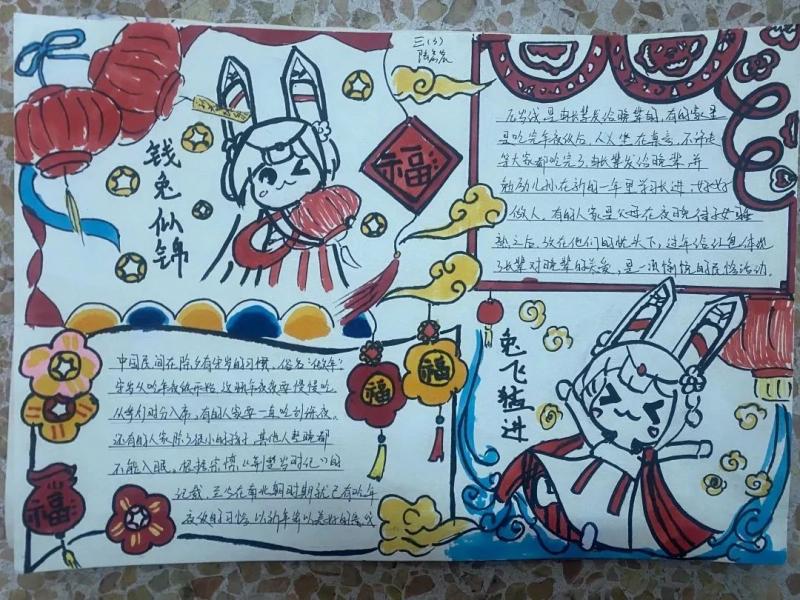 三(3)
钱兔似锦
福
在当代是长辈发给晚辈的,有的家里
是吃完年夜饭后,人人坐在桌旁不许走
等大家都吃完了长辈发给晚辈,并
勉励儿孙在新的一年里学习长进,好好
做人。有的人家是父母在夜晚待子女睡
熟之后,放在他们的枕头下,过年给红包体现
长辈对晚辈的关爱,是一项愉悦的民俗活动。
福
福
中国民间在除夕有守岁的习惯,俗名"熬年"
守岁从吃年夜饭开始,这顿年夜饭要慢慢吃
从掌灯时分入席,有的人家要一直吃到深夜。
还有的人家除了很小的孩子,其他人整晚都
不能入眠。根据宗懔《荆楚岁时记》的
记载,至少在南北朝时期就已有吃年
夜饭的习俗
福
兔飞猛进